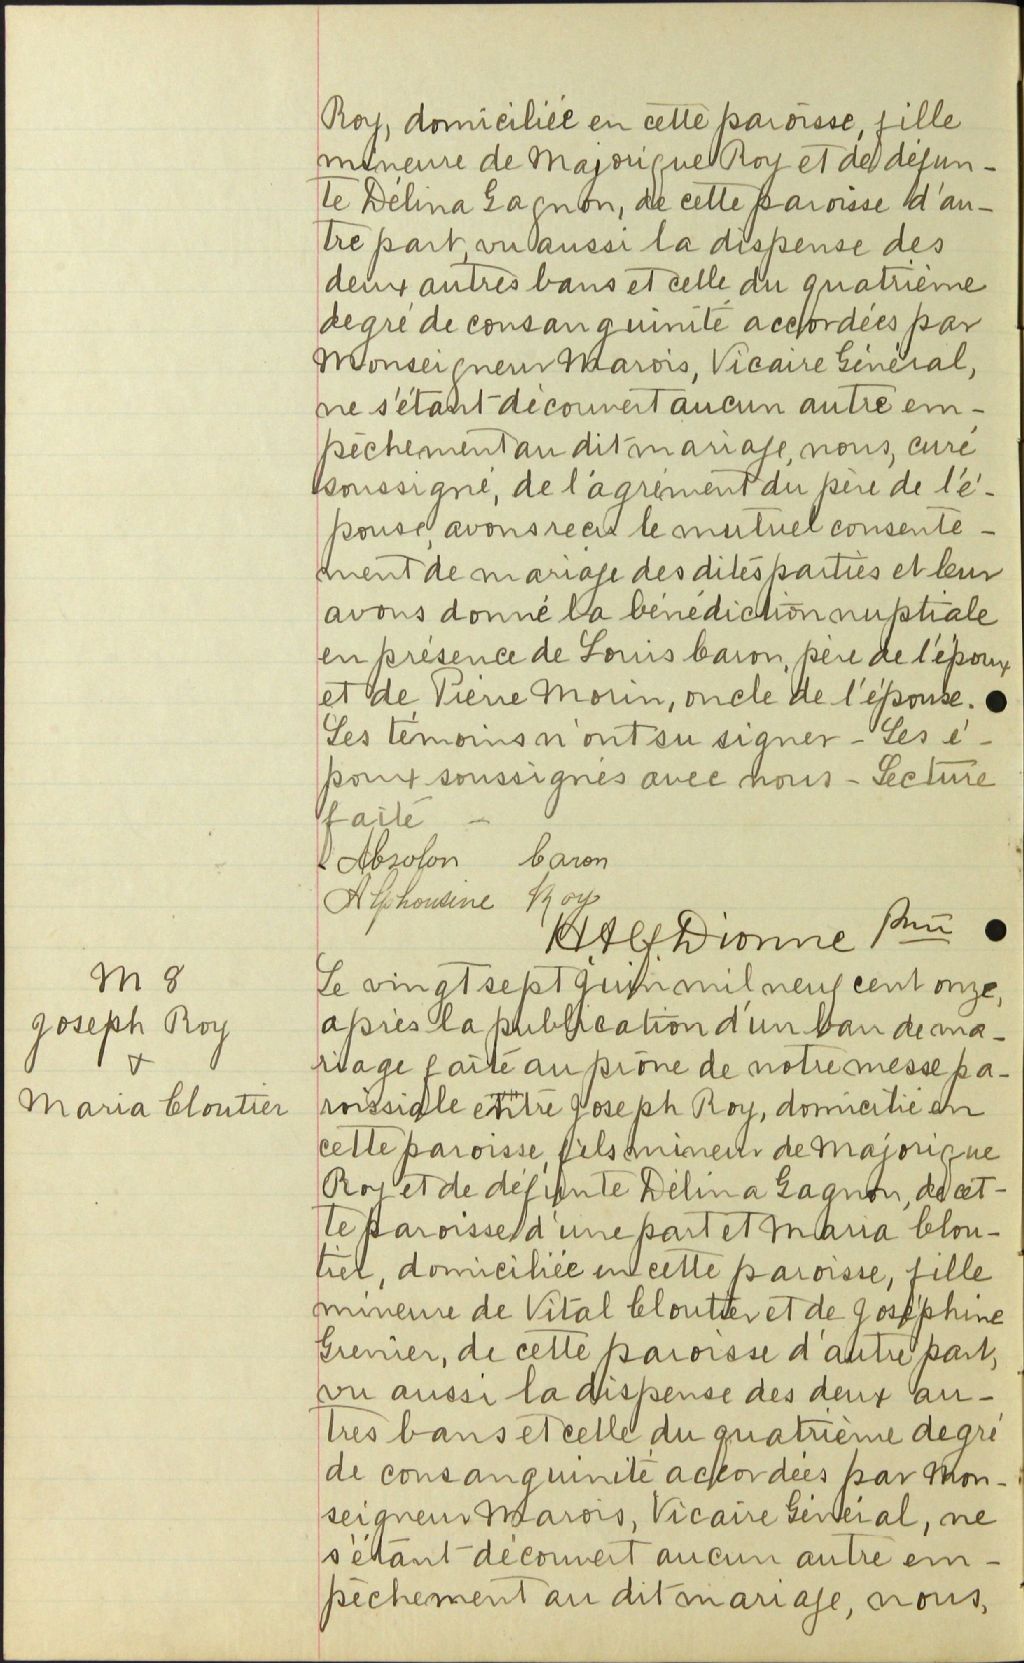 Roy, domiciliée en cette paroisse, fille
mineure de Majorique Roy et de défun-
te Délina Gagnon, de cette paroisse d'au-
tre part, vu aussi la dispense des
deux autres bans et celle du quatrième
degré de consanguinité accordées par
Monseigneur Marois, Vicaire Général,
ne s'étant découvert aucun autre em-
pêchement au dit mariage, nous, curé
soussigné, de l'agrément du père de l'é-
pouse, avons reçu le mutuel consente-
ment de mariage des dites parties et leur
avons donné la bénédiction nuptiale
en présence de Louis Caron, père de l'époux
et de Pierre Morin, oncle de l'épouse.
Les témoins n'ont su signer - Les é-
poux soussignés avec nous - Lecture
faite -
Absolon Caron
Alphonsine Roy
H. Alf. Dionne Ptre
M 8
Joseph Roy
&
Maria Cloutier
Le vingt sept Juin mil neuf cent onze,
après la publication d'un ban de ma-
riage faite au prône de notre messe pa-
roissiale entre Joseph Roy, domicilié en
cette paroisse, fils mineur de Majorique
Roy et de défunte Délina Gagnon, de cet-
te paroisse d'une part et Maria Clou-
tier, domiciliée en cette paroisse, fille
mineure de Vital Cloutier et de Joséphine
Grenier, de cette paroisse d'autre part,
vu aussi la dispense des deux au-
tres bans et celle du quatrième degré
de consanguinité accordées par Mon-
seigneur Marois, Vicaire Général, ne
s'étant découvert aucun autre em-
pêchement au dit mariage, nous,